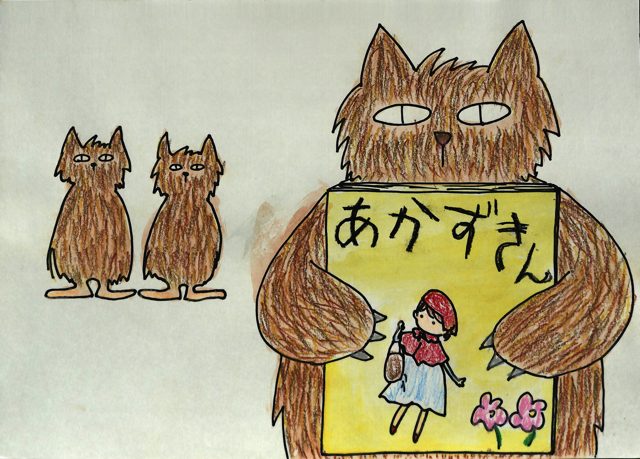 あかずきん